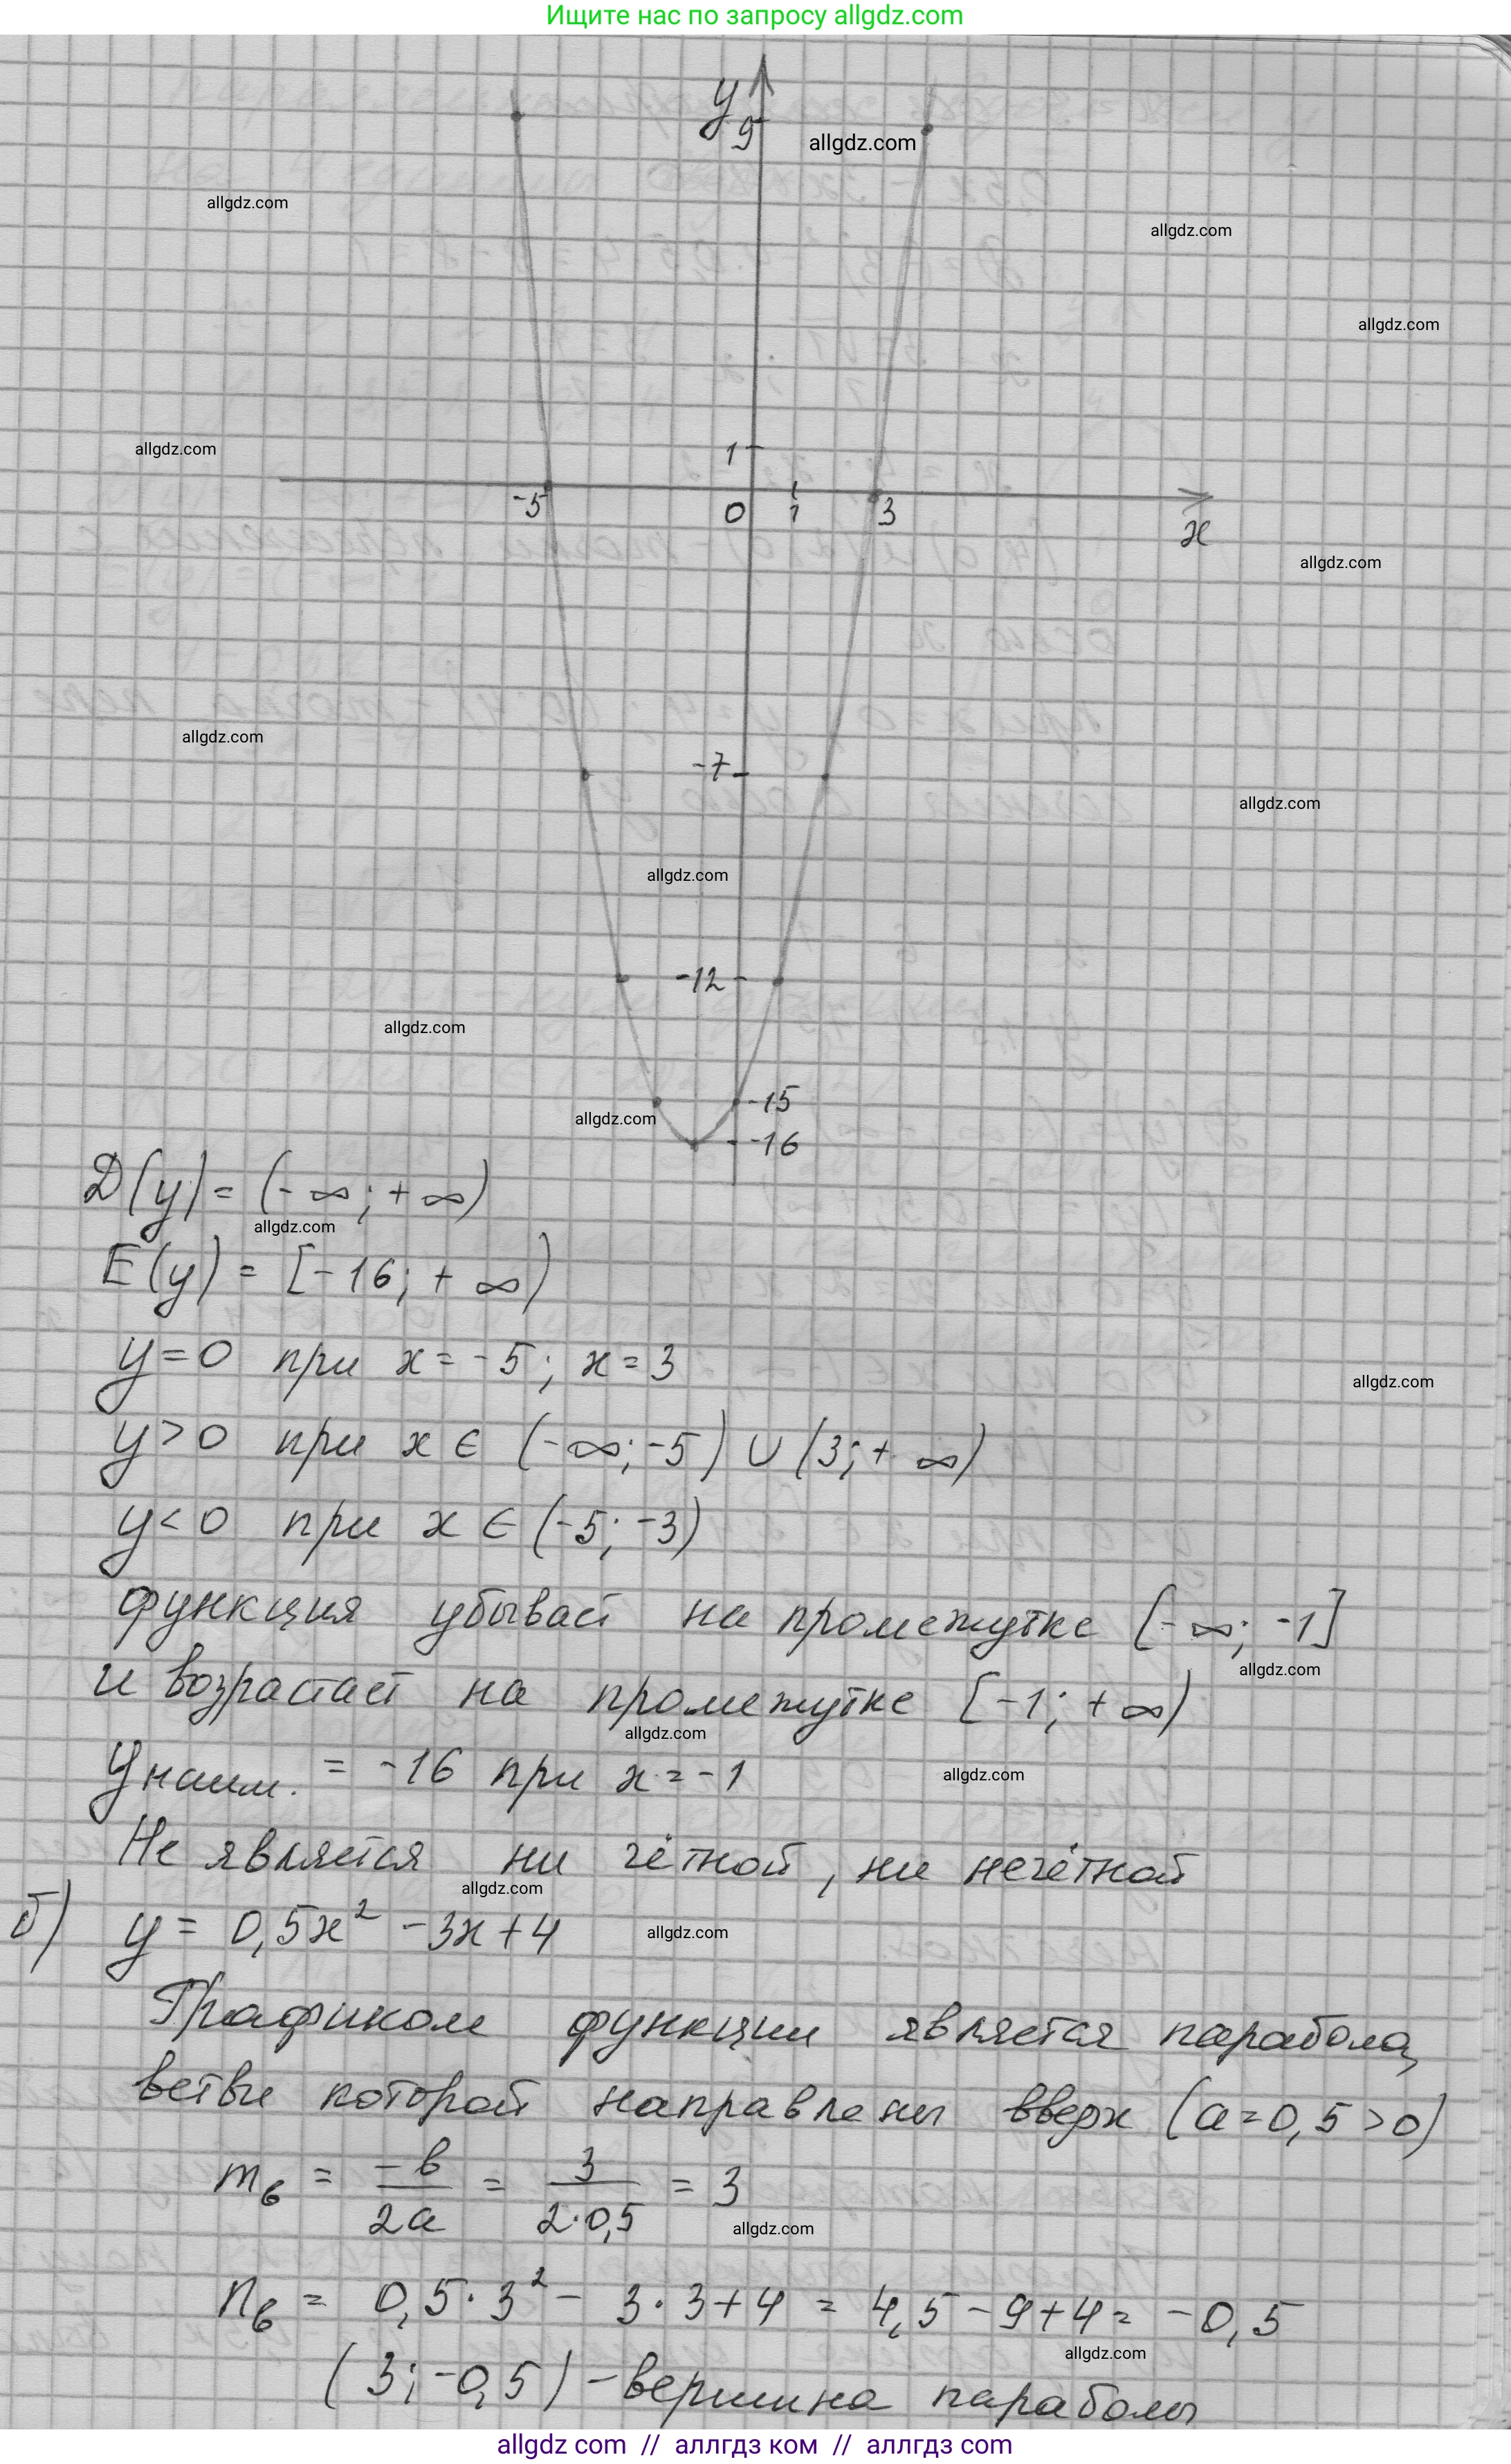 Ищите нас по запросу allgdz.com
y
9
allgdz.com
allgdz.com
allgdz.com
allgdz.com
allgdz.com
1
-5
0
1
3
x
allgdz.com
-7
allgdz.com
allgdz.com
allgdz.com
-12
allgdz.com
-15
allgdz.com
-16
D(y) = (-∞; +∞)
allgdz.com
E(y) = [-16; +∞)
y=0 при x=-5; x=3
allgdz.com
y>0 при x ∈ (-∞; -5) ∪ (3; +∞)
y<0 при x ∈ (-5; -3)
функция убывает на промежутке [-∞; -1]
allgdz.com
и возрастает на промежутке [-1; +∞)
allgdz.com
yнаим. = -16 при x=-1
allgdz.com
Не является ни чётной, ни нечётной
allgdz.com
б) y = 0,5x² - 3x + 4
allgdz.com
Графиком функции является парабола,
ветви которой направлены вверх (a=0,5>0)
mв = -b/2a = 3/2·0,5 = 3
allgdz.com
nв = 0,5·3² - 3·3+4 = 4,5-9+4 = -0,5
allgdz.com
(3; -0,5) - вершина параболы
allgdz com // аллгдз ком // аллгдз com